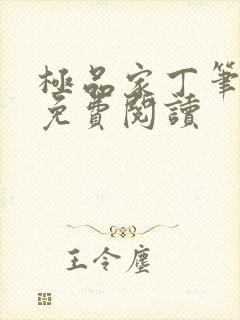 極品家丁筆
免費閱讀
王令塵